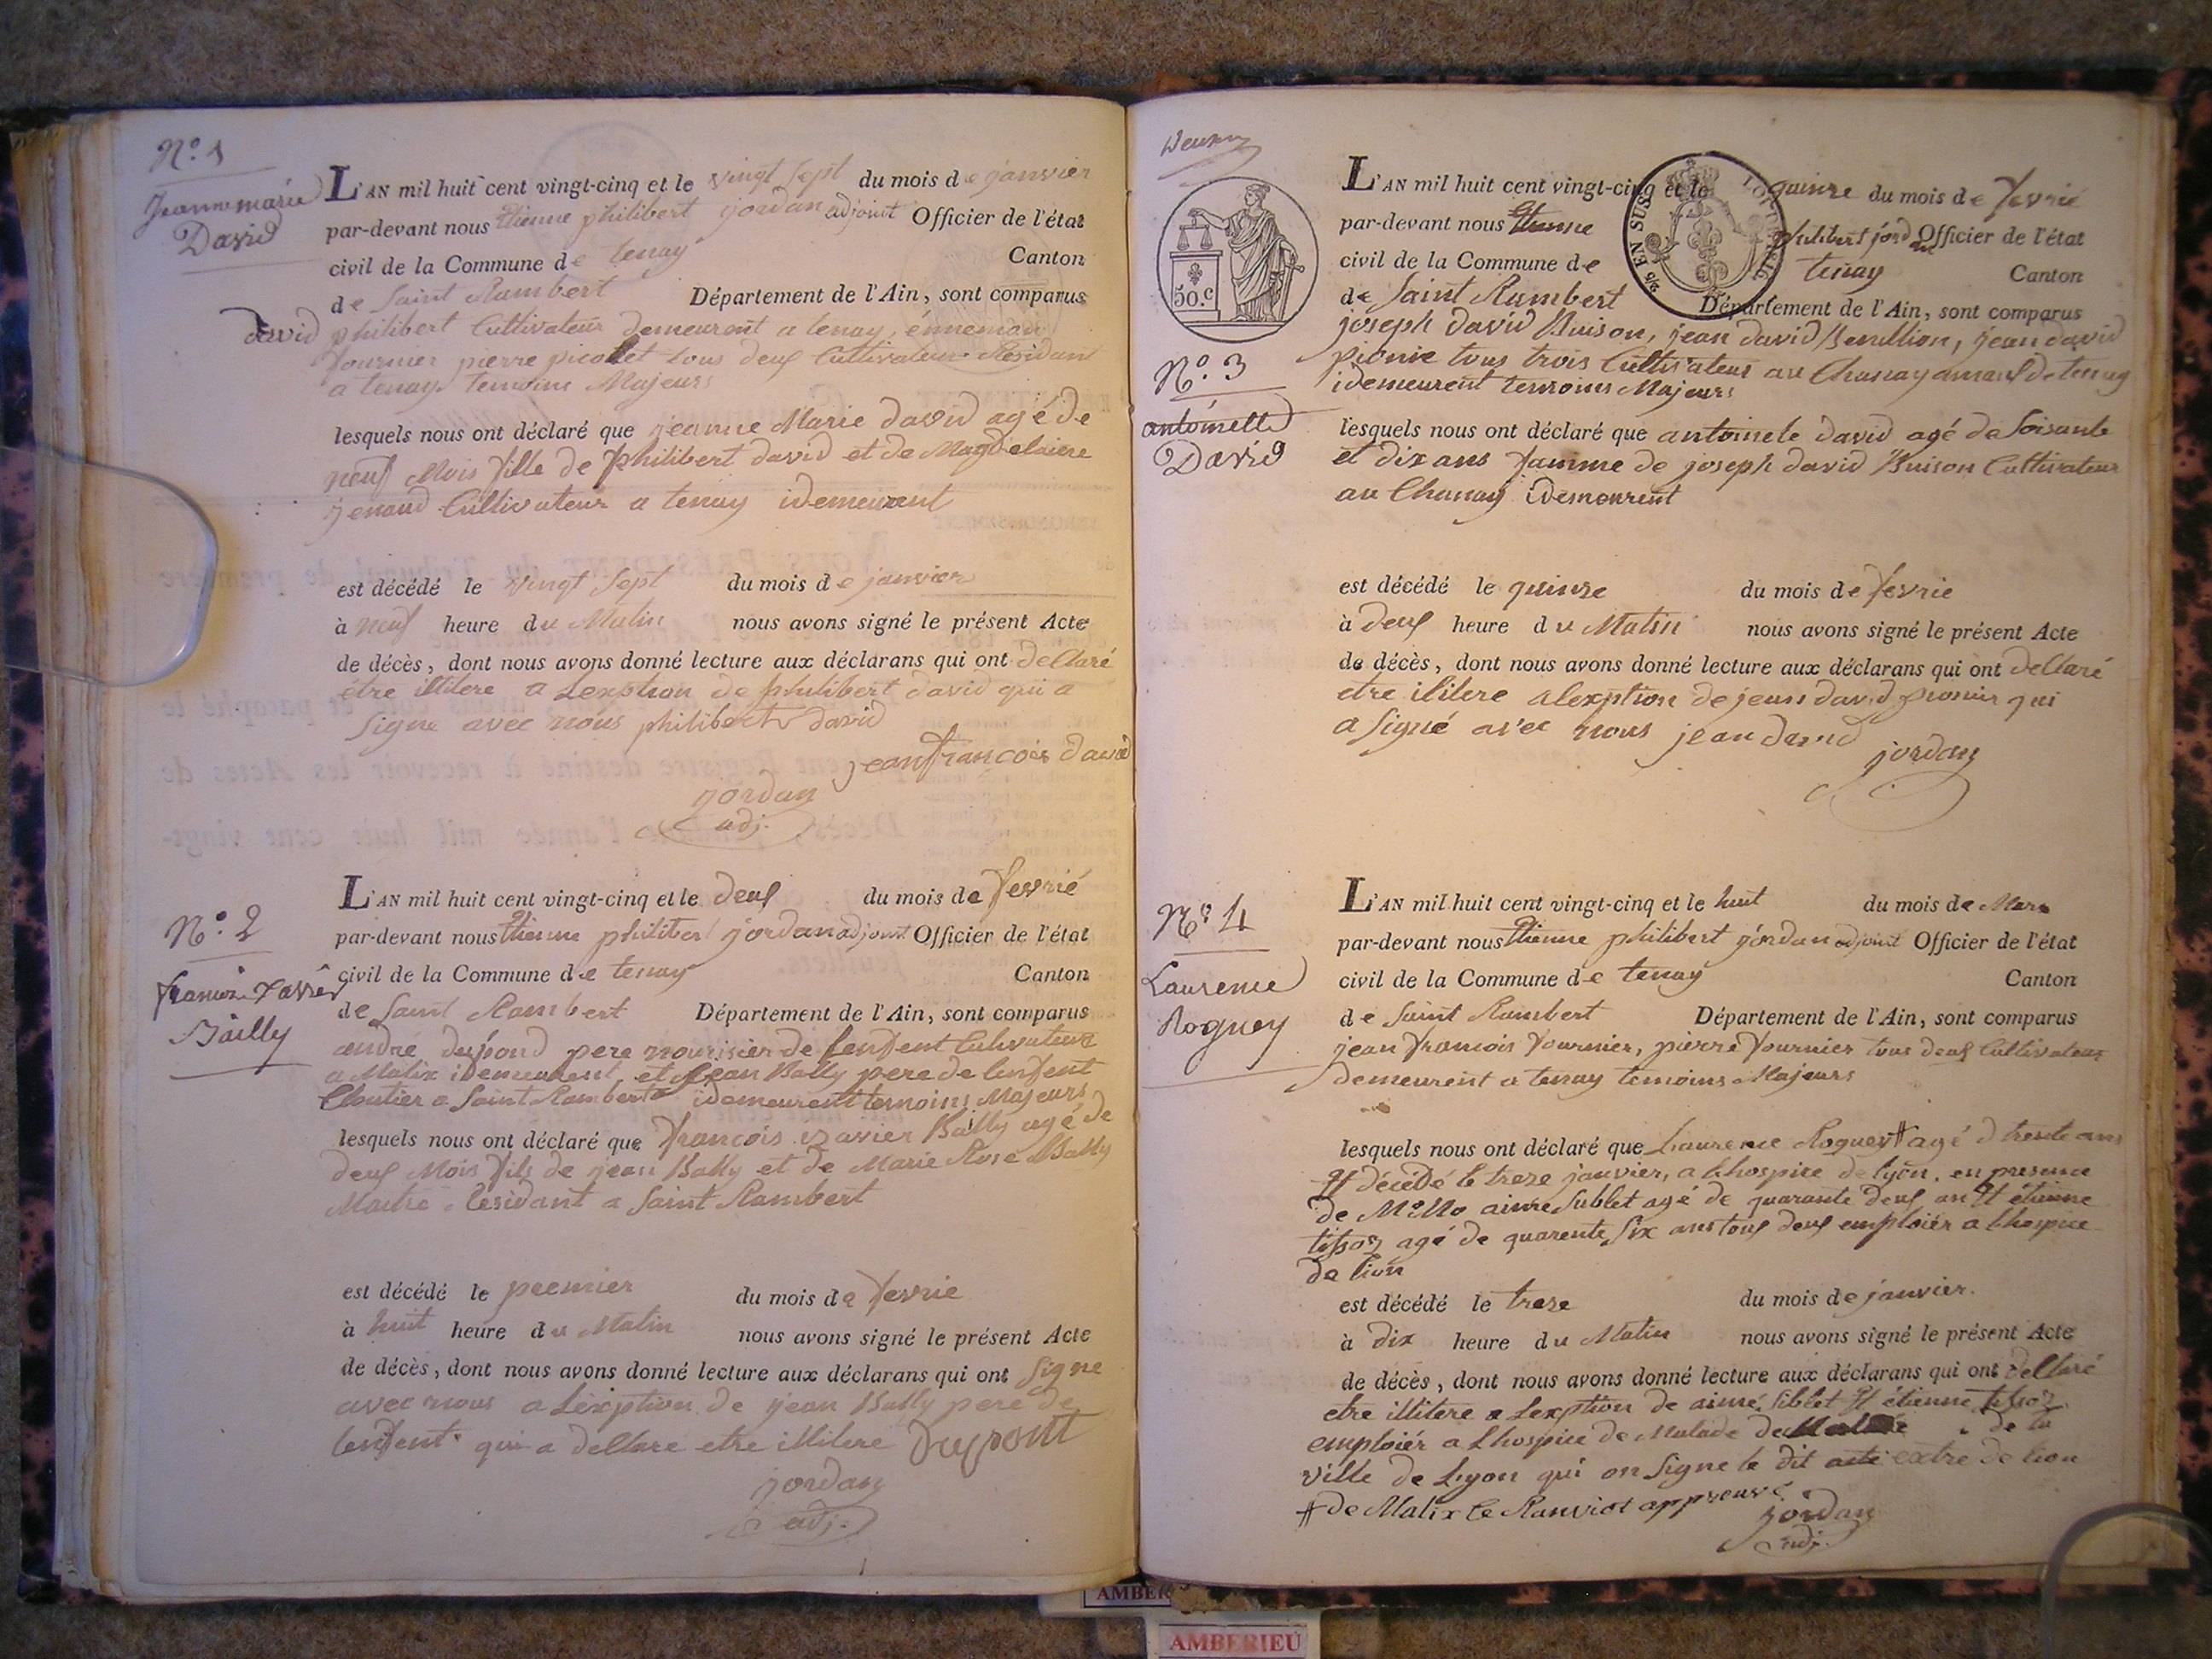 N.o 1
Jeanne marie
David
L'AN mil huit cent vingt-cinq et le vingt sept du mois de janvier
par-devant nous Etienne philibert jordan adjoint Officier de l'état
civil de la Commune de tenay Canton
de Saint Rambert Département de l'Ain, sont comparus
david philibert Cultivateur demeurent a tenay, énnemon
fournier pierre picollet tous deux Cultivateur Residant
a tenay temoins Majeurs
lesquels nous ont déclaré que jeanne Marie david agé de
neuf Mois fille de philibert david et de Magdelaiene
jenaud Cultivateur a tenay idemeurent
est décédé le vingt sept du mois de janvier
à neuf heure du Matin nous avons signé le présent Acte
de décès, dont nous avons donné lecture aux déclarans qui ont dellaré
étre illitere a Lexption de philibert david qui a
Signe avec nous philibert david
jean francois david
jordan
adj.
N.o 2
francois Xavier
Bailly
L'AN mil huit cent vingt-cinq et le deux du mois de fevrié
par-devant nous Etienne philibert jordan adjoint Officier de l'état
civil de la Commune de tenay Canton
de Saint Rambert Département de l'Ain, sont comparus
andré dupond pere nourisier de Lenfent Cultivateur
a Malix idemeurent et jean Bally pere de lenfent
Cloutier a Saint Rambert idemeurent temoins Majeurs
lesquels nous ont déclaré que francois xavier Bailly agé de
deux Mois fils de jean Bally et de Marie Rose Bally
Residant a Saint Rambert
est décédé le premier du mois de fevrie
à huit heure du Matin nous avons signé le présent Acte
de décès, dont nous avons donné lecture aux déclarans qui ont Signe
avec nous a Lexption de jean Bally pere de
lenfent qui a dellare etre illitere Dupont
jordan
adj.
50.c
EN SUS
N.o 3
antoinette
David
L'AN mil huit cent vingt-cinq et le quinze du mois de fevrie
par-devant nous Etienne philibert jordan Officier de l'état
civil de la Commune de tenay Canton
de Saint Rambert Département de l'Ain, sont comparus
joseph david Buison, jean david Benittion, jean david
pionie tous trois Cultivateur au Chanay de tenay
idemeurent temoins Majeurs
lesquels nous ont déclaré que antoinete david agé de Soisante
et dix ans famme de joseph david Buison Cultivateur
au Chanay idemeurent
est décédé le quinze du mois de fevrie
à deux heure du Matin nous avons signé le présent Acte
de décès, dont nous avons donné lecture aux déclarans qui ont dellaré
etre ilitere a lexption de jean david pionier qui
a Signé avec nous jean david
jordan
N.o 4
Laurence
Roguey
L'AN mil huit cent vingt-cinq et le huit du mois de Mars
par-devant nous Etienne philibert jordan adjoint Officier de l'état
civil de la Commune de tenay Canton
de Saint Rambert Département de l'Ain, sont comparus
jean francois fournier, pierre fournier tous deux Cultivateur
demeurent a tenay temoins Majeurs
lesquels nous ont déclaré que Laurence Roguey # agé d trente ans
et décédé le treze janvier, a Lhospice de lyon, en presence
de aimé Sublet agé de quarante deux an et étienne
tissoz agé de quarente Six ans tous deux emploiér a Lhospice
de lion
est décédé le treze du mois de janvier.
à dix heure du Matin nous avons signé le présent Acte
de décès, dont nous avons donné lecture aux déclarans qui ont dellaré
etre illitere a Lexption de aimé Siblet et étienne tissoz
emploiér a Lhospice de Malade de la
ville de Lyon qui on Signe le dit acte extre de lion
# de Malix le Ranviot appreuvé
jordan
adj.
AMBERIEU